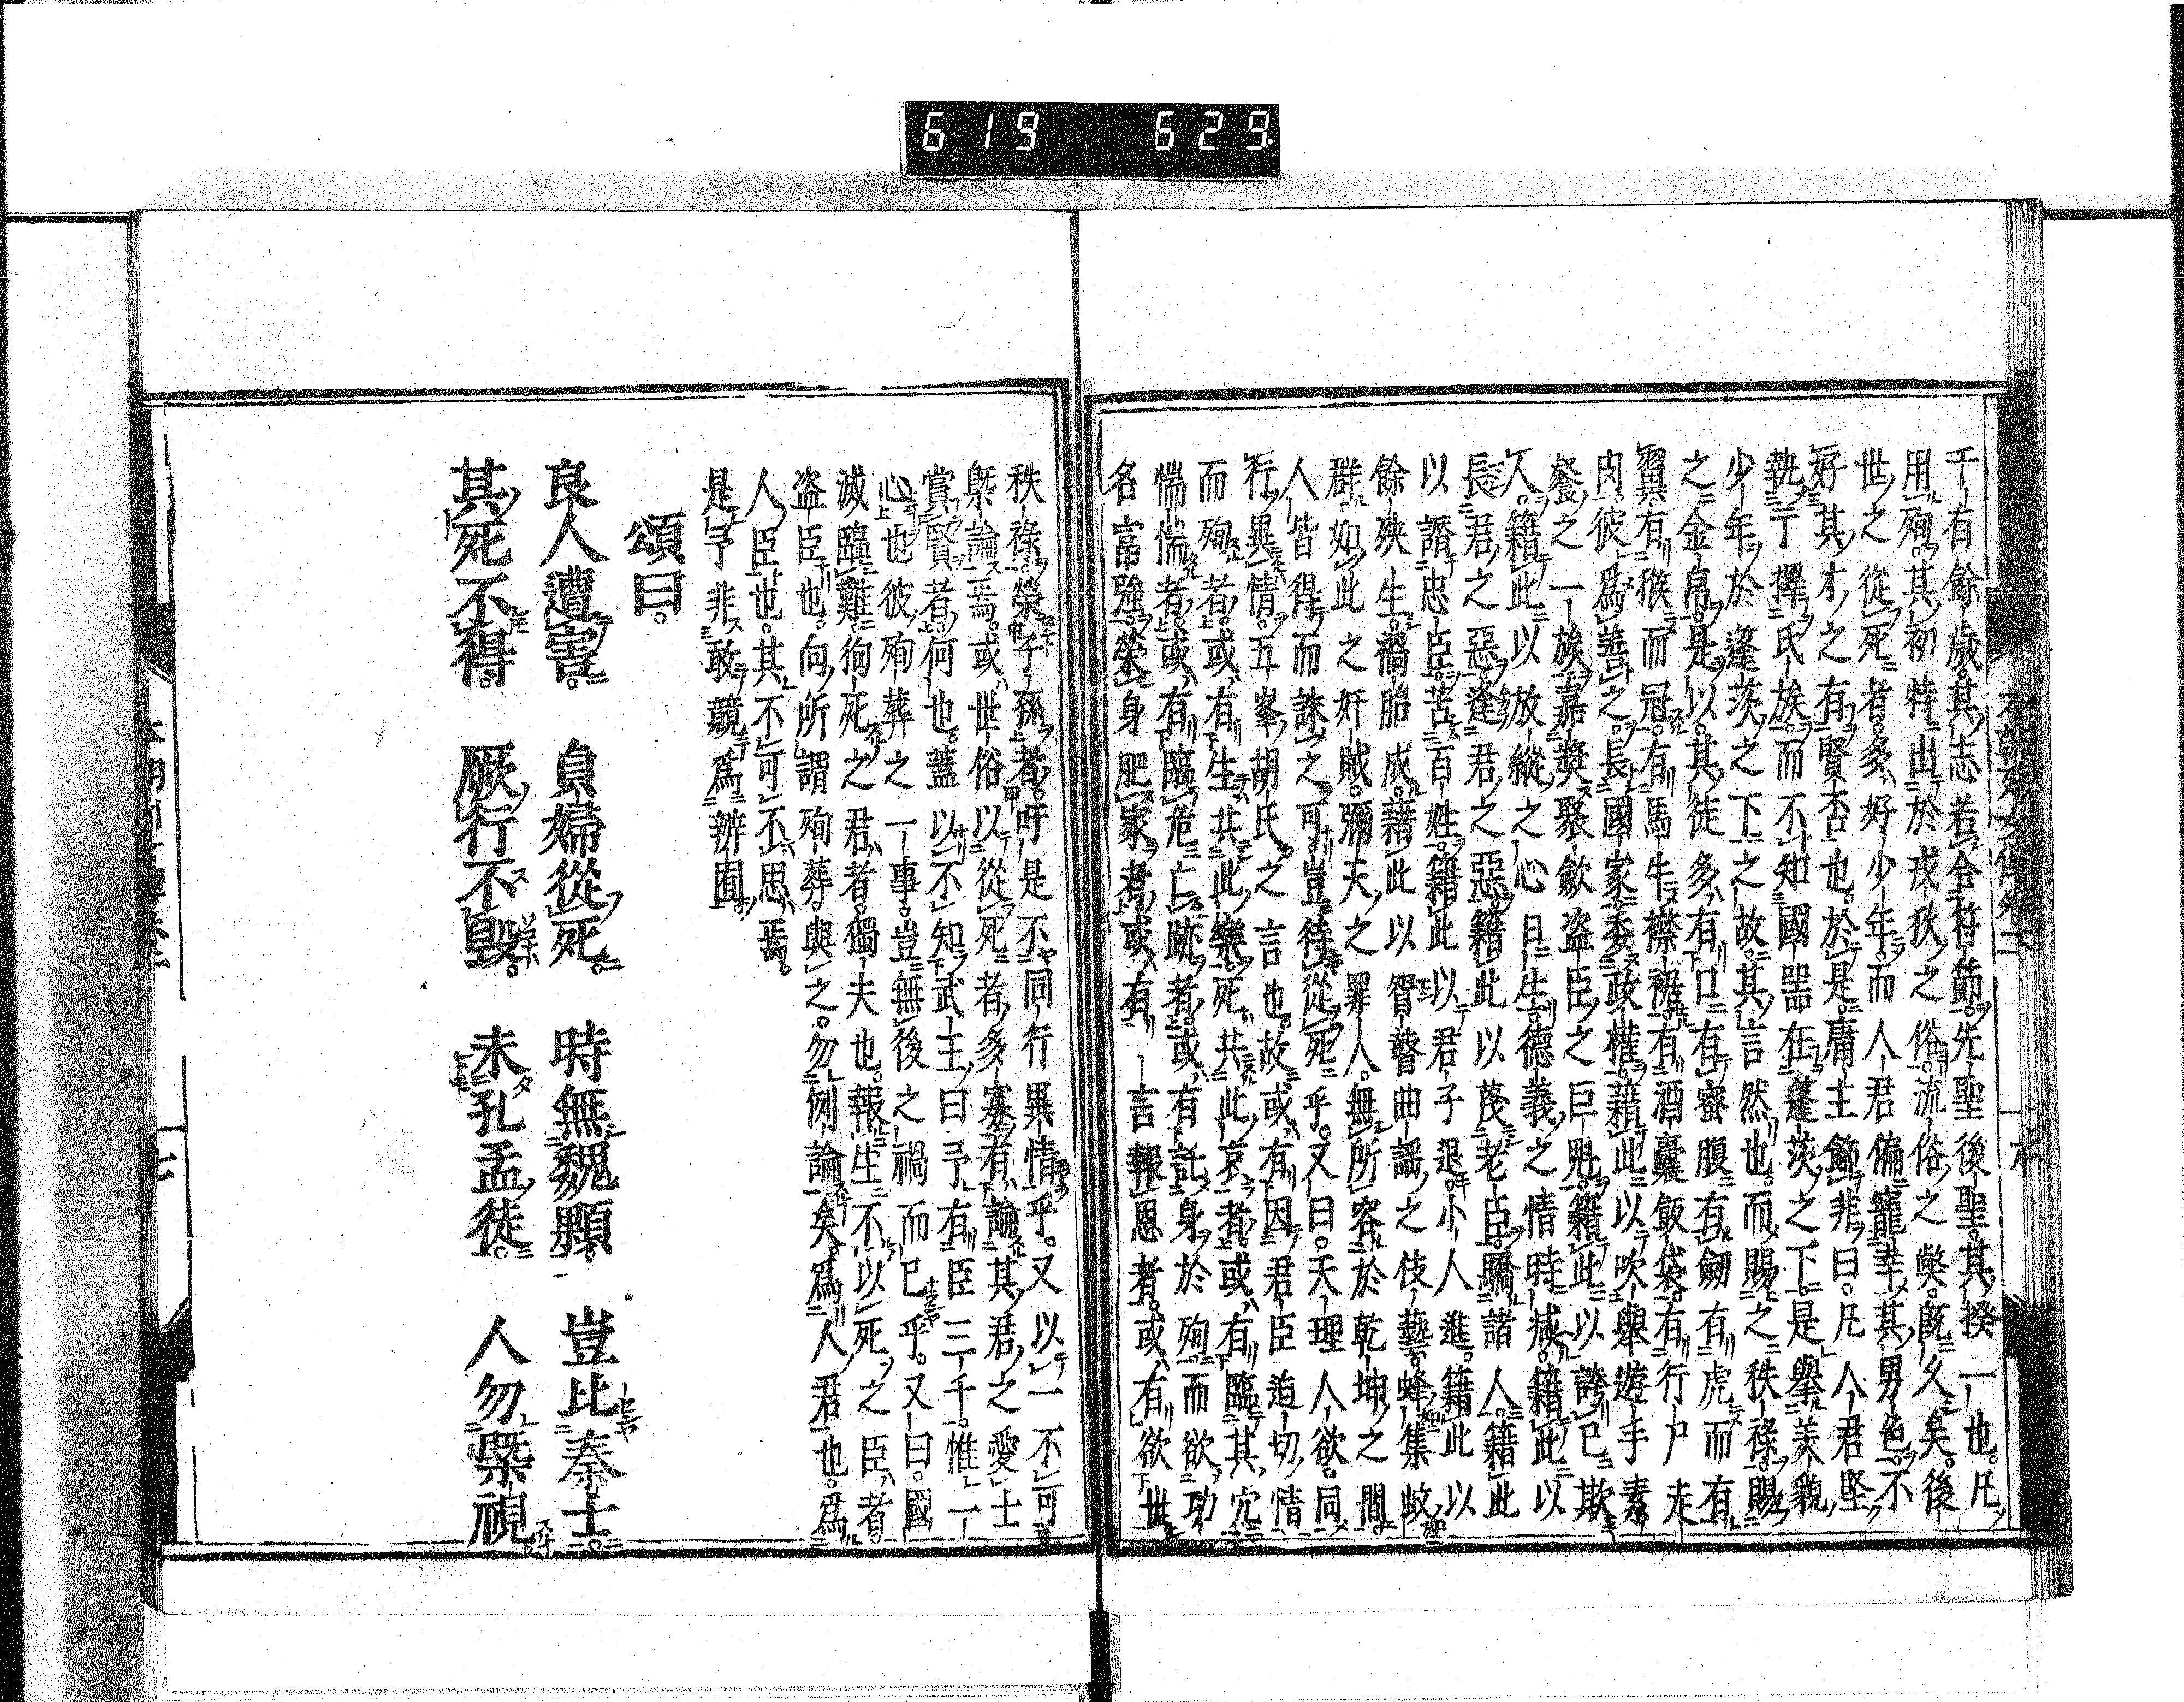 619 629
千有餘歲其志若合符節先聖後聖其揆一也凡
用殉其初特出於戎狄之俗流俗之獘旣久矣後
世之從死者多好少年而人君偏寵幸其男色不
好其才之有賢否也於是庸主飾非曰凡人君堅
執丁擇氏族而不知國噐在蓬茨之下是擧美貌
少年於蓬茨之下之故其言然也而賜之秩祿賜
之金帛是以其徒多有口有蜜腹有劒有虎而有
翼有猴而冠有馬牛襟裾有酒囊飯袋有行尸走
肉彼爲善之長國家委政權藉此以吹擧遊手素
餐之一族嘉奬聚歛盗臣之巨魁籍此以誇已欺
人籍此以放縱之心日生德義之情時减籍此以
長君之惡逢君之惡籍此以蔑老臣驕諸人籍此
以譖忠臣苦百姓籍此以君子退小人進籍此以
餘殃生禍胎成藉此以智瞽曲謡之伎藝蜂集蚊
群如此之奸賊彌天之罪人無所容於乾坤之間
人皆得而誅之可豈待從死乎又曰天理人欲同
行異情五峯胡氏之言也故或有因君臣迫切情
而殉者或有生共此樂死共此哀者或有臨其穴
惴惴者或有臨危亡跡者或有託身於殉而欲功
名富強榮身肥家者或有一言報恩者或有欲世
秩祿榮子孫者吁是不同行異情乎又以一不可
槩論焉或世俗以從死者多寡有論其君之愛士
賞賢者何也蓋以不知武主曰予有臣三千惟一
心也彼殉葬之一事豈無後之禍而已乎又曰國
滅臨難狥死之君者獨夫也報生不以死之臣者
盗臣也向所謂殉葬與之勿例論矣爲人君也爲
人臣也其不可不思焉
是予非敢競爲辨囿
頌曰
良人遭害 貞婦從死 時無魏顆 豈比秦士
其死不得 厥行不毀 未孔孟徒 人勿槩視